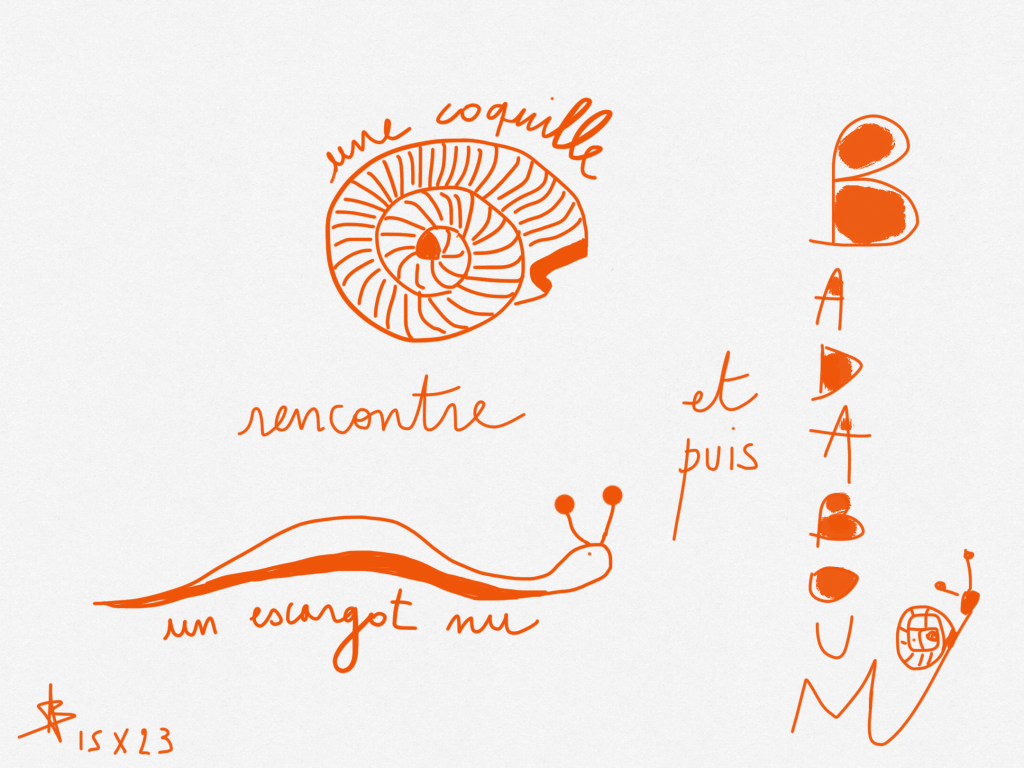 une coquille
rencontre
un escargot nu
et
puis
BADABOUM
15 X 23